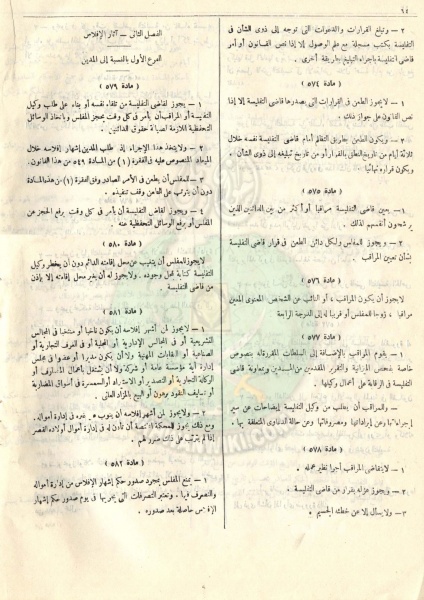 ٦٤
٢ — وتبلغ القرارات والدعوات التى توجه إلى ذوى الشأن فى
التفليسة بكتب مسجلة مع علم الوصول إلا إذا نص القانون أو أمر
قاضى التفليسة باجراء التبليغ بطريقة أخرى .
( مادة ٥٧٤ )
١ — لا يجوز الطعن فى القرارات التى يصدرها قاضى التفليسة إلا إذا
نص القانون على جواز ذلك .
٢ — ويكون الطعن بطريق التظلم أمام قاضى التفليسة نفسه خلال
ثلاثة أيام من تاريخ النطق بالقرار أو من تاريخ تبليغه إلى ذوى الشأن .
ويكون قراره نهائيا .
( مادة ٥٧٥ )
١ — يعين قاضى التفليسة مراقبا أو أكثر من بين الدائنين الذين
يرشحون أنفسهم لذلك .
٢ — ويجوز للمفلس ولكل دائن الطعن فى قرار قاضى التفليسة
بشأن تعيين المراقب .
( مادة ٥٧٦ )
لا يجوز أن يكون المراقب ، أو النائب عن الشخص المعنوى المعين
مراقبا ، زوجا للمفلس أو قريبا له إلى الدرجة الرابعة
( مادة ٥٧٧ )
١ — يقوم المراقب بالإضافة إلى السلطات المقررة له بنصوص
خاصة بفحص الميزانية والتقرير المقدمين من المدين وبمعاونة قاضى
التفليسة فى الرقابة على أعمال وكيلها .
٢ — وللمراقب أن يطلب من وكيل التفليسة إيضاحات عن سير
إجراءاتها وعن إيراداتها ومصروفاتها وعن حالة الدعاوى المتعلقة بها .
( مادة ٥٧٨ )
١ — لا يتقاضى المراقب أجرا نظير عمله .
٢ — ويجوز عزله بقرار من قاضى التفليسة .
٣ — ولا يسأل إلا عن خطئه الجسيم .
الفصل الثانى — آثار الإفلاس
الفرع الأول بالنسبة إلى المدين
( مادة ٥٧٩ )
١ — يجوز لقاضى التفليسة من تلقاء نفسه أو بناء على طلب وكيل
التفليسة أو المراقب أن يأمر فى كل وقت بحجز المفلس وباتخاذ الوسائل
التحفظية اللازمة لصيانة حقوق الدائنين .
٢ — ولا يتخذ هذا الإجراء إذا طلب المدين إشهار إفلاسه خلال
الميعاد المنصوص عليه فى الفقرة (١) من المادة ٥٤٩ من هذا القانون .
٣ — للمفلس أن يطعن فى الأمر الصادر وفق الفقرة (١) من هذه المادة
دون أن يترتب على الطعن وقف تنفيذه .
٤ — ويجوز لقاضى التفليسة أن يأمر فى كل وقت برفع الحجز عن
المفلس أو برفع الوسائل التحفظية عنه .
( مادة ٥٨٠ )
لا يجوز للمفلس أن يتغيب عن محل إقامته الدائم دون أن يخطر وكيل
التفليسة كتابة بمحل وجوده . ولا يجوز له أن يغير محل إقامته إلا بإذن
من قاضى التفليسة
( مادة ٥٨١ )
١ — لا يجوز لمن أشهر إفلاسه أن يكون ناخبا أو منتخبا فى المجالس
التشريعية أو فى المجالس الإدارية أو المحلية أو فى الغرف التجارية أو
الصناعية أو النقابات المهنية ولا أن يكون مديرا أو عضوا فى مجلس
إدارة أية مؤسسة عامة أو شركة ولا أن يشتغل بأعمال المصارف أو
الوكالة التجارية أو التصدير أو الاستيراد أو السمسرة فى أسواق المضاربة
أو تسليف النقود برهون أو البيع بالمزاد العلنى .
٢ — ولا يجوز لمن أشهر إفلاسه أن ينوب عن غيره فى إدارة أمواله .
ومع ذلك يجوز للمحكمة المختصة أن تأذن له فى إدارة أموال أولاده القصر
إذا لم يترتب على ذلك ضرر لهم .
( مادة ٥٨٢ )
١ — يمنع المفلس بمجرد صدور حكم إشهار الإفلاس من إدارة أمواله
والتصرف فيها . وتعتبر التصرفات التى يجريها فى يوم صدور حكم إشهار
الإفلاس حاصلة بعد صدوره .